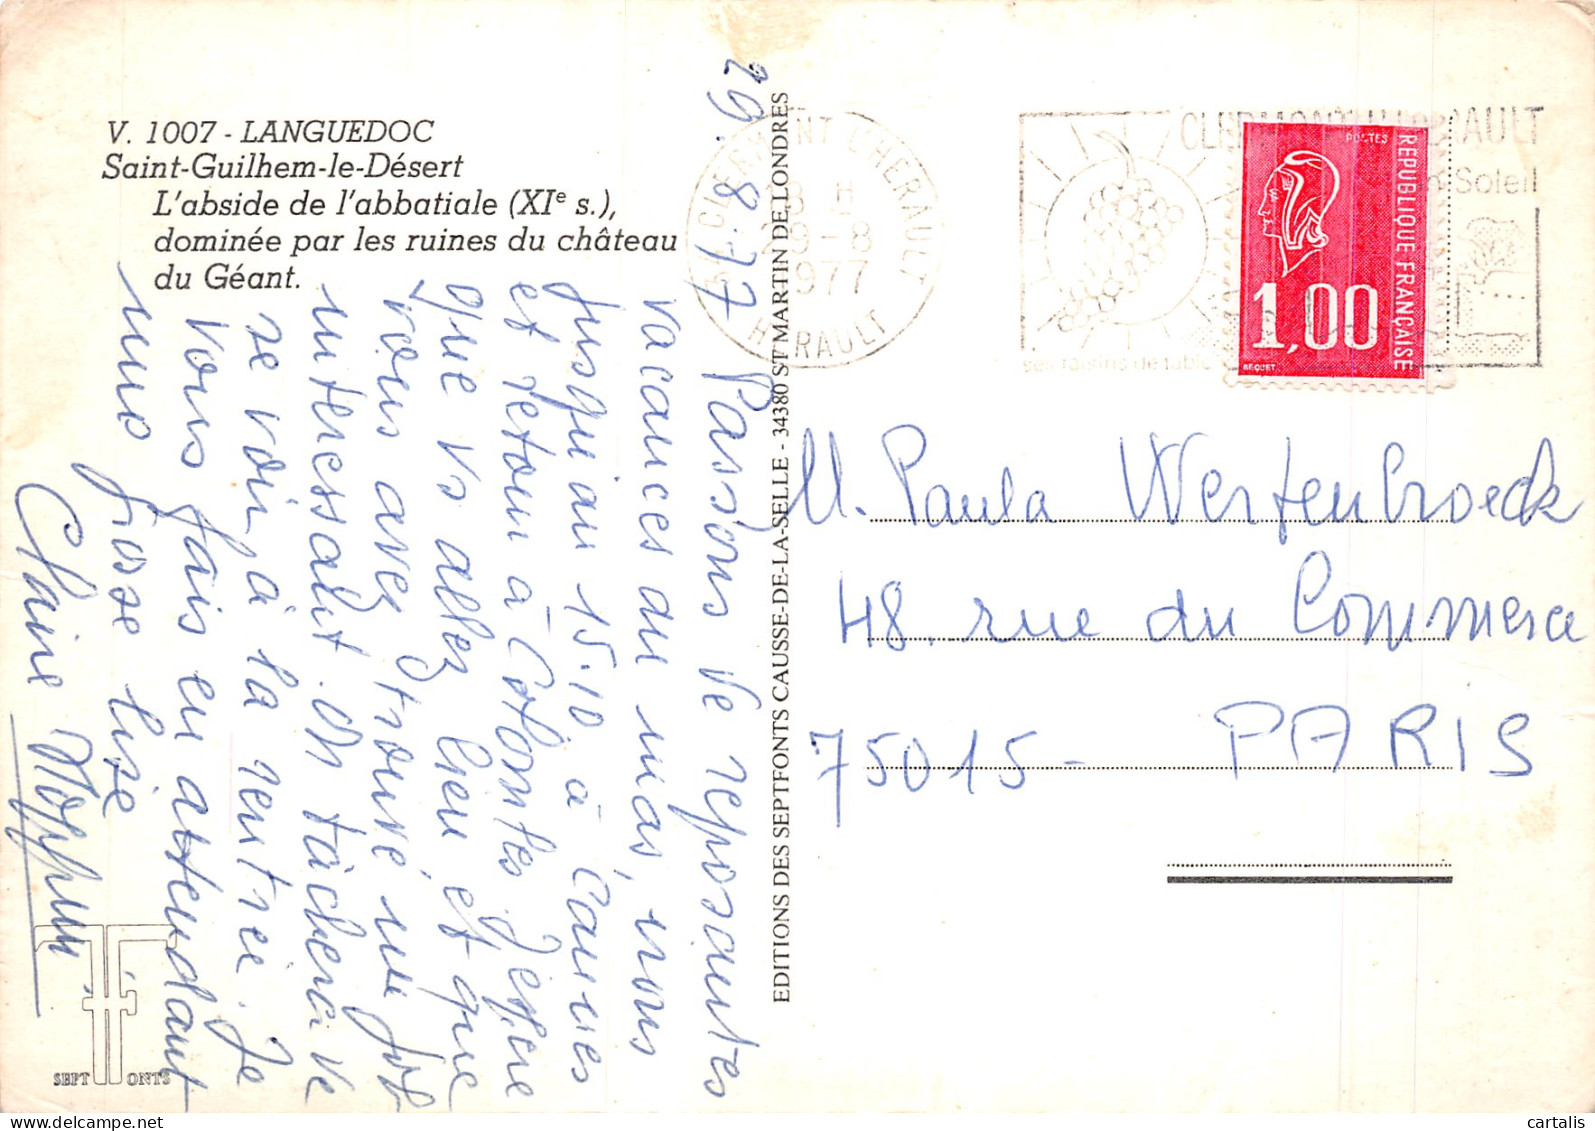 V. 1007 - LANGUEDOC
Saint-Guilhem-le-Désert
L'abside de l'abbatiale (XIe s.),
dominée par les ruines du château
du Géant.
29.8.77 Passons de reposantes
vacances du mas, nous
jusqu'au 15.10 à Cannes
et retour à Colombes. J'espère
que vs allez bien et que
vous avez trouvé un job
intéressant. On tâchera de
se voir à la rentrée. Je
vous fais en attendant
une grosse bise
Claire
SEPT FONTS
EDITIONS DES SEPTFONTS CAUSSE-DE-LA-SELLE - 34380 ST MARTIN DE LONDRES
CLERMONT L'HERAULT
18 H
29-8
1977
HERAULT
CLERMONT L'HERAULT
Soleil
ses raisins de table
POSTES
REPUBLIQUE FRANÇAISE
1,00
BEQUET
M. Paula Wertenbroeck
48. rue du Commerce
75015 - PARIS
cartalis